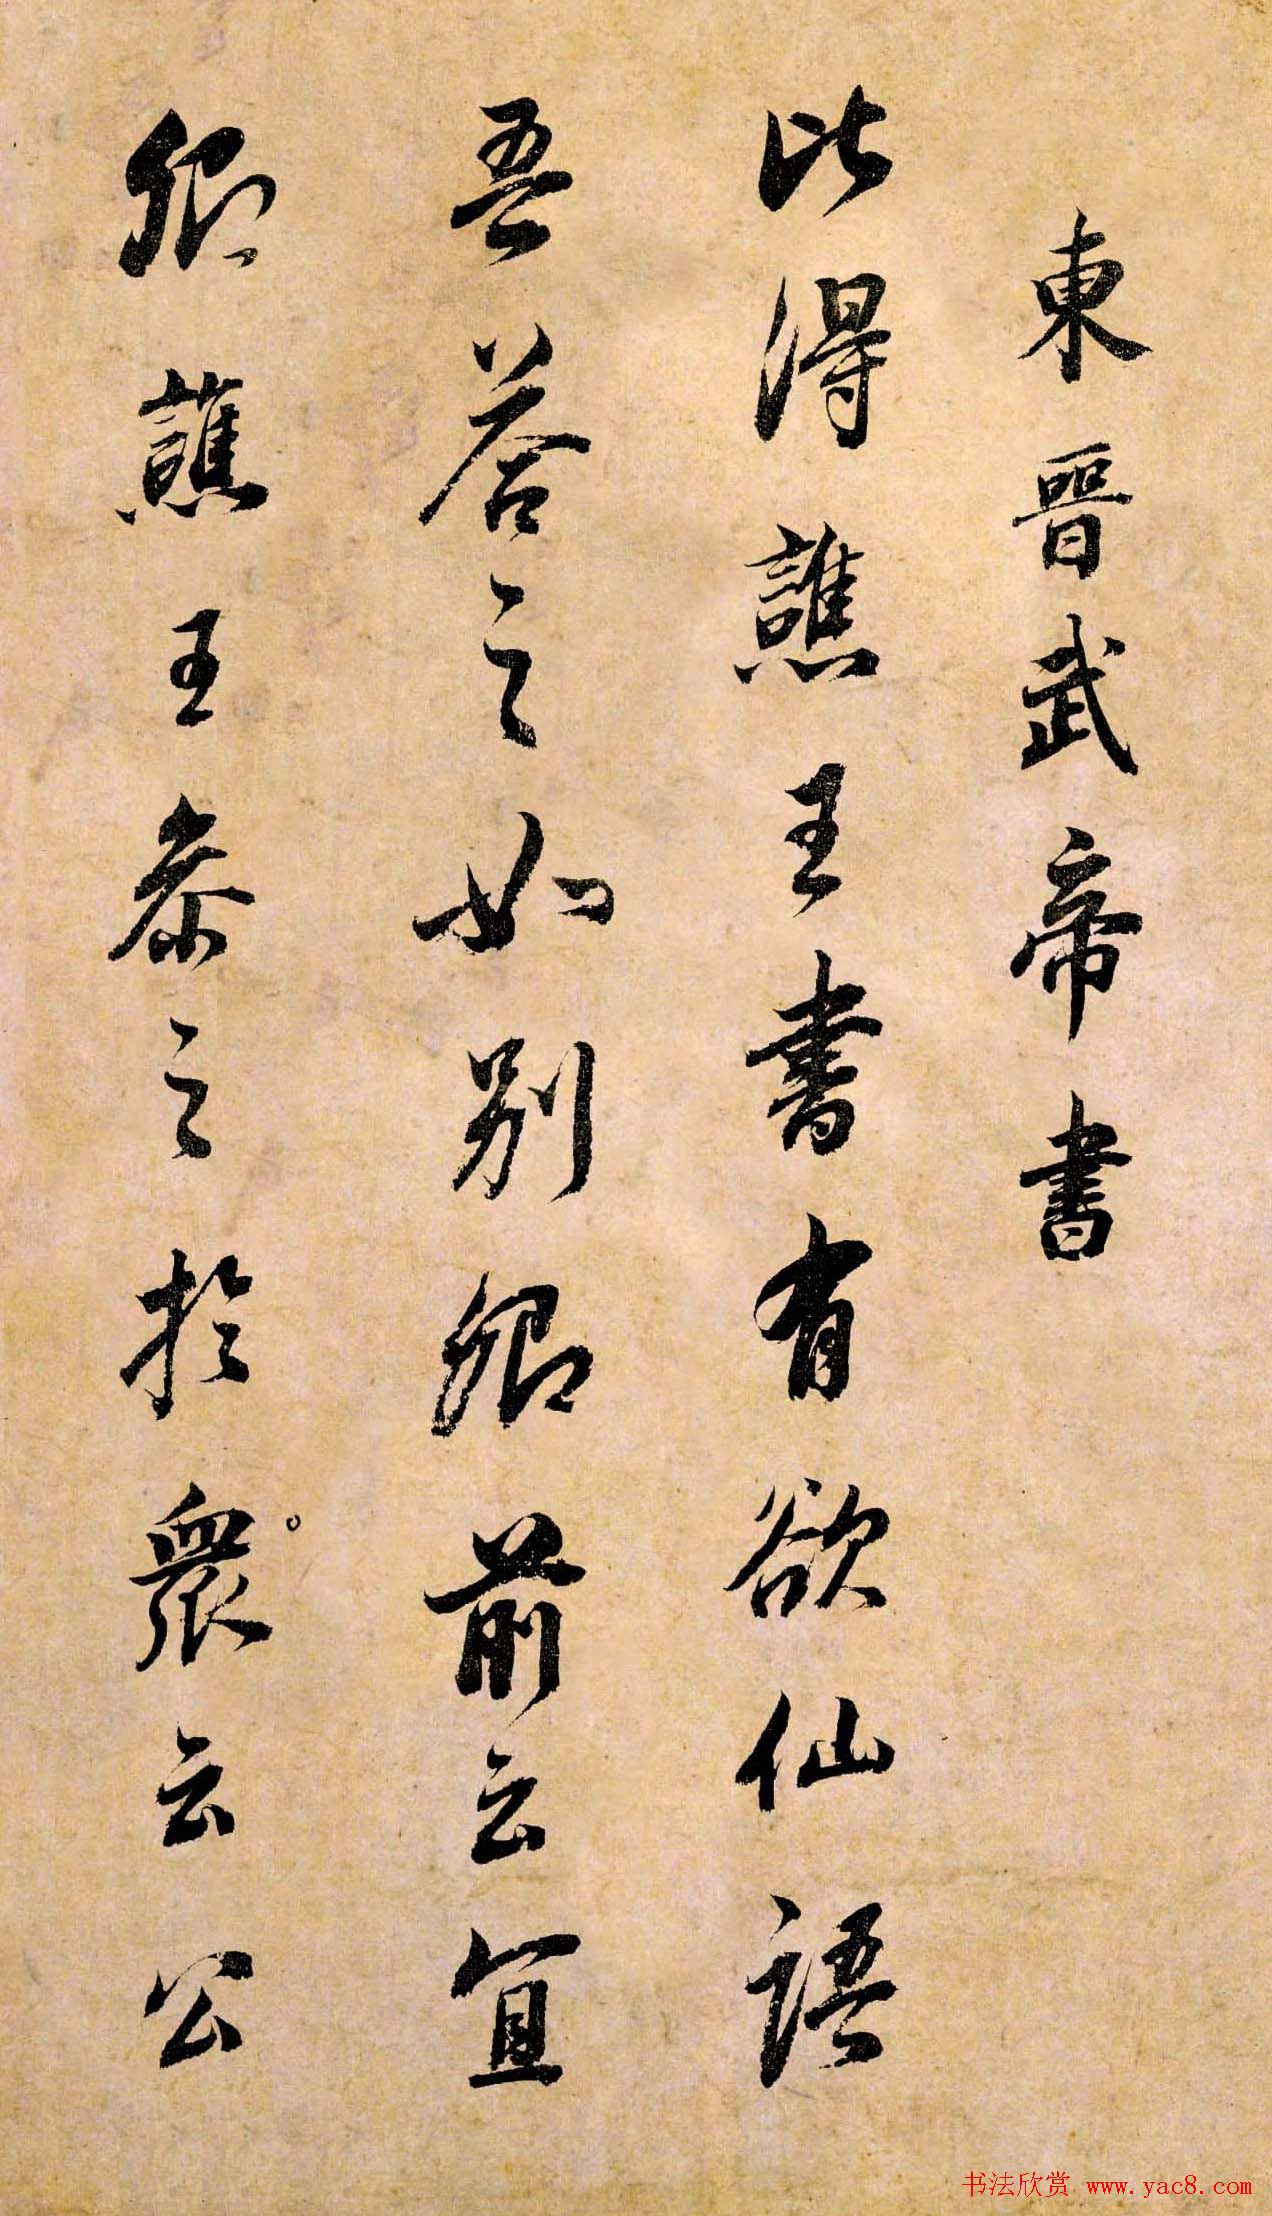 東晉武帝書
比得譙王書有欲仙語
吾答之如别卿前云宜
卿譙王之於眾云公
书法欣赏 www.yac8.com